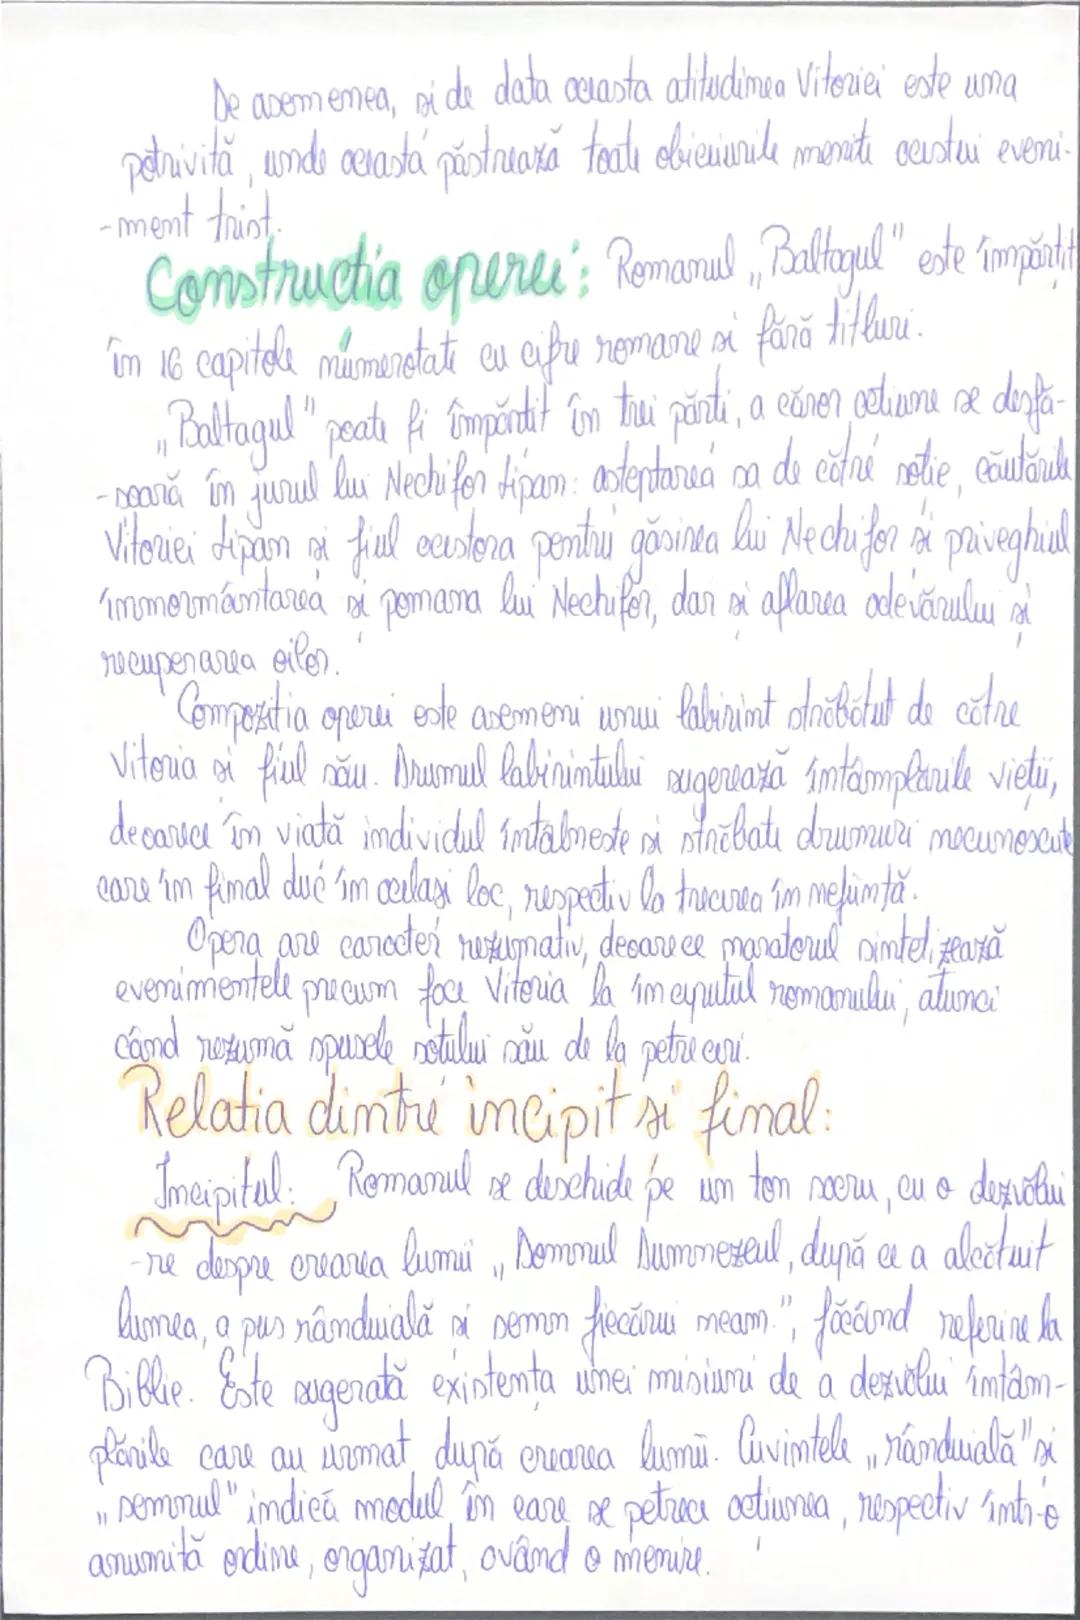 De asemenea, și de data aceasta atitudinea Vitoriei este una
potrivită, unde aceasta păstrează toate obiceiurile menite acestui eveni-
-ment trist.
Constructia operei: Romanul „Baltagul" este împărțit
în 16 capitole numerotate cu cifre romane si fără titluri.
„Baltagul" poate fi împărtit în trei părti, a căror actiune se desfă-
-șoară în jurul lui Nechifor Lipan: asteptarea sa de către sotie, căutările
Vitoriei Lipan si fiul acestora pentru găsirea lui Nechifor si priveghiul
înmormântarea si pomana lui Nechifor, dar și aflarea adevărului și
recuperarea oilor.
Compozitia operei este asemeni unui labirint străbătut de către
Vitoria si fiul său. Drumul labirintului sugerează întâmplările vieții,
deoarece în viată individul întâlneste si străbate drumuri necunoscute
care în final duc în acelasi loc, respectiv la trecerea în neființă.
Opera are caracter rezumativ, deoarece naratorul sintetizează
evenimentele precum face Vitoria la începutul romanului, atunci
când rezumă spusele sotului său de la petreceri.
Relatia dintre incipit si final:
Incipitul: Romanul se deschide pe un ton sacru, cu o dezvălui
-re despre crearea lumii „Domnul Dumnezeul, după ce a alcătuit
lumea, a pus rânduială si semn fiecărui neam.", făcând referire la
Biblie. Este sugerată existența unei misiuni de a dezvălui întâm-
plările care au urmat după crearea lumii. Cuvintele „rânduială" si
„semnul" indică modul în care se petrece actiunea, respectiv într-o
anumită ordine, organizat, având o menire.